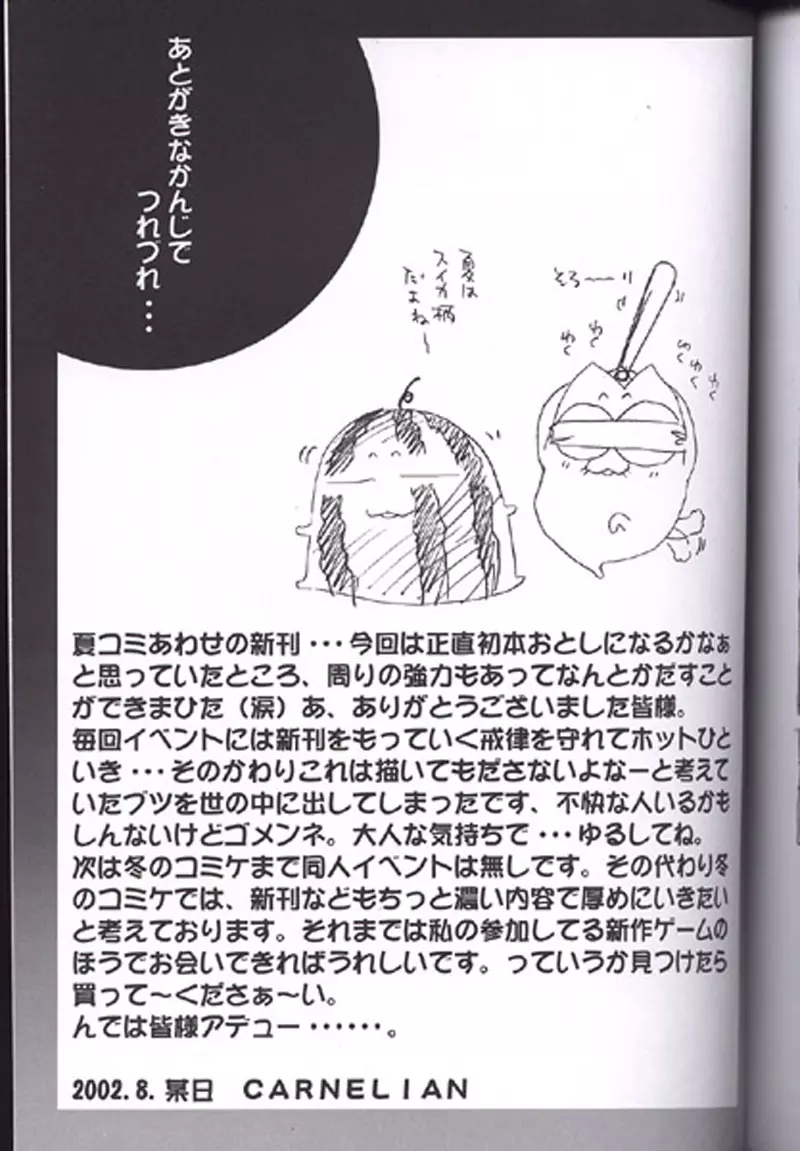 あとがきなかんじで
つれづれ・・・
そろ〜〜り
わく
わく
わく
わく
わく
夏は
スイカ柄
だよね〜
夏コミあわせの新刊・・・今回は正直初本おとしになるかなぁ
と思っていたところ、周りの強力もあってなんとかだすこと
ができまひた（涙）あ、ありがとうございました皆様。
毎回イベントには新刊をもっていく戒律を守れてホットひと
いき・・・そのかわりこれは描いてもださないよなーと考えて
いたブツを世の中に出してしまったです、不快な人いるかも
しんないけどゴメンネ。大人な気持ちで・・・ゆるしてね。
次は冬のコミケまで同人イベントは無しです。その代わり冬
のコミケでは、新刊などもちっと濃い内容で厚めにいきたい
と考えております。それまでは私の参加してる新作ゲームの
ほうでお会いできればうれしいです。っていうか見つけたら
買って〜くださぁ〜い。
んでは皆様アデュー・・・・・・。
2002.8.某日　CARNELIAN